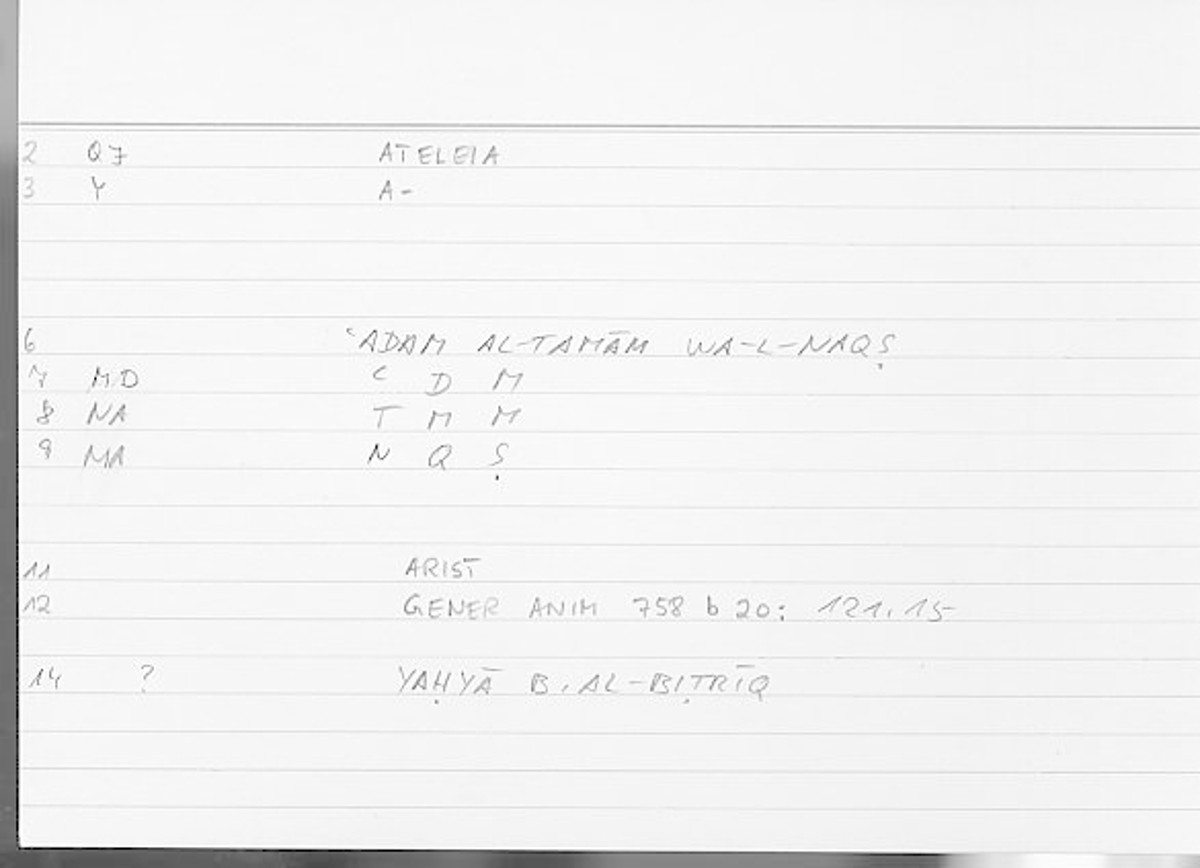 2 Q7 ATELEIA
3 Y A-
6 ʿADAM AL-TAMĀM WA-L-NAQṢ
7 MD ʿ D M
8 NA T M M
9 MA N Q Ṣ
11 ARIST
12 GENER ANIM 758 b 20: 121.15
14 ? YAḤYĀ B. AL-BIṬRĪQ